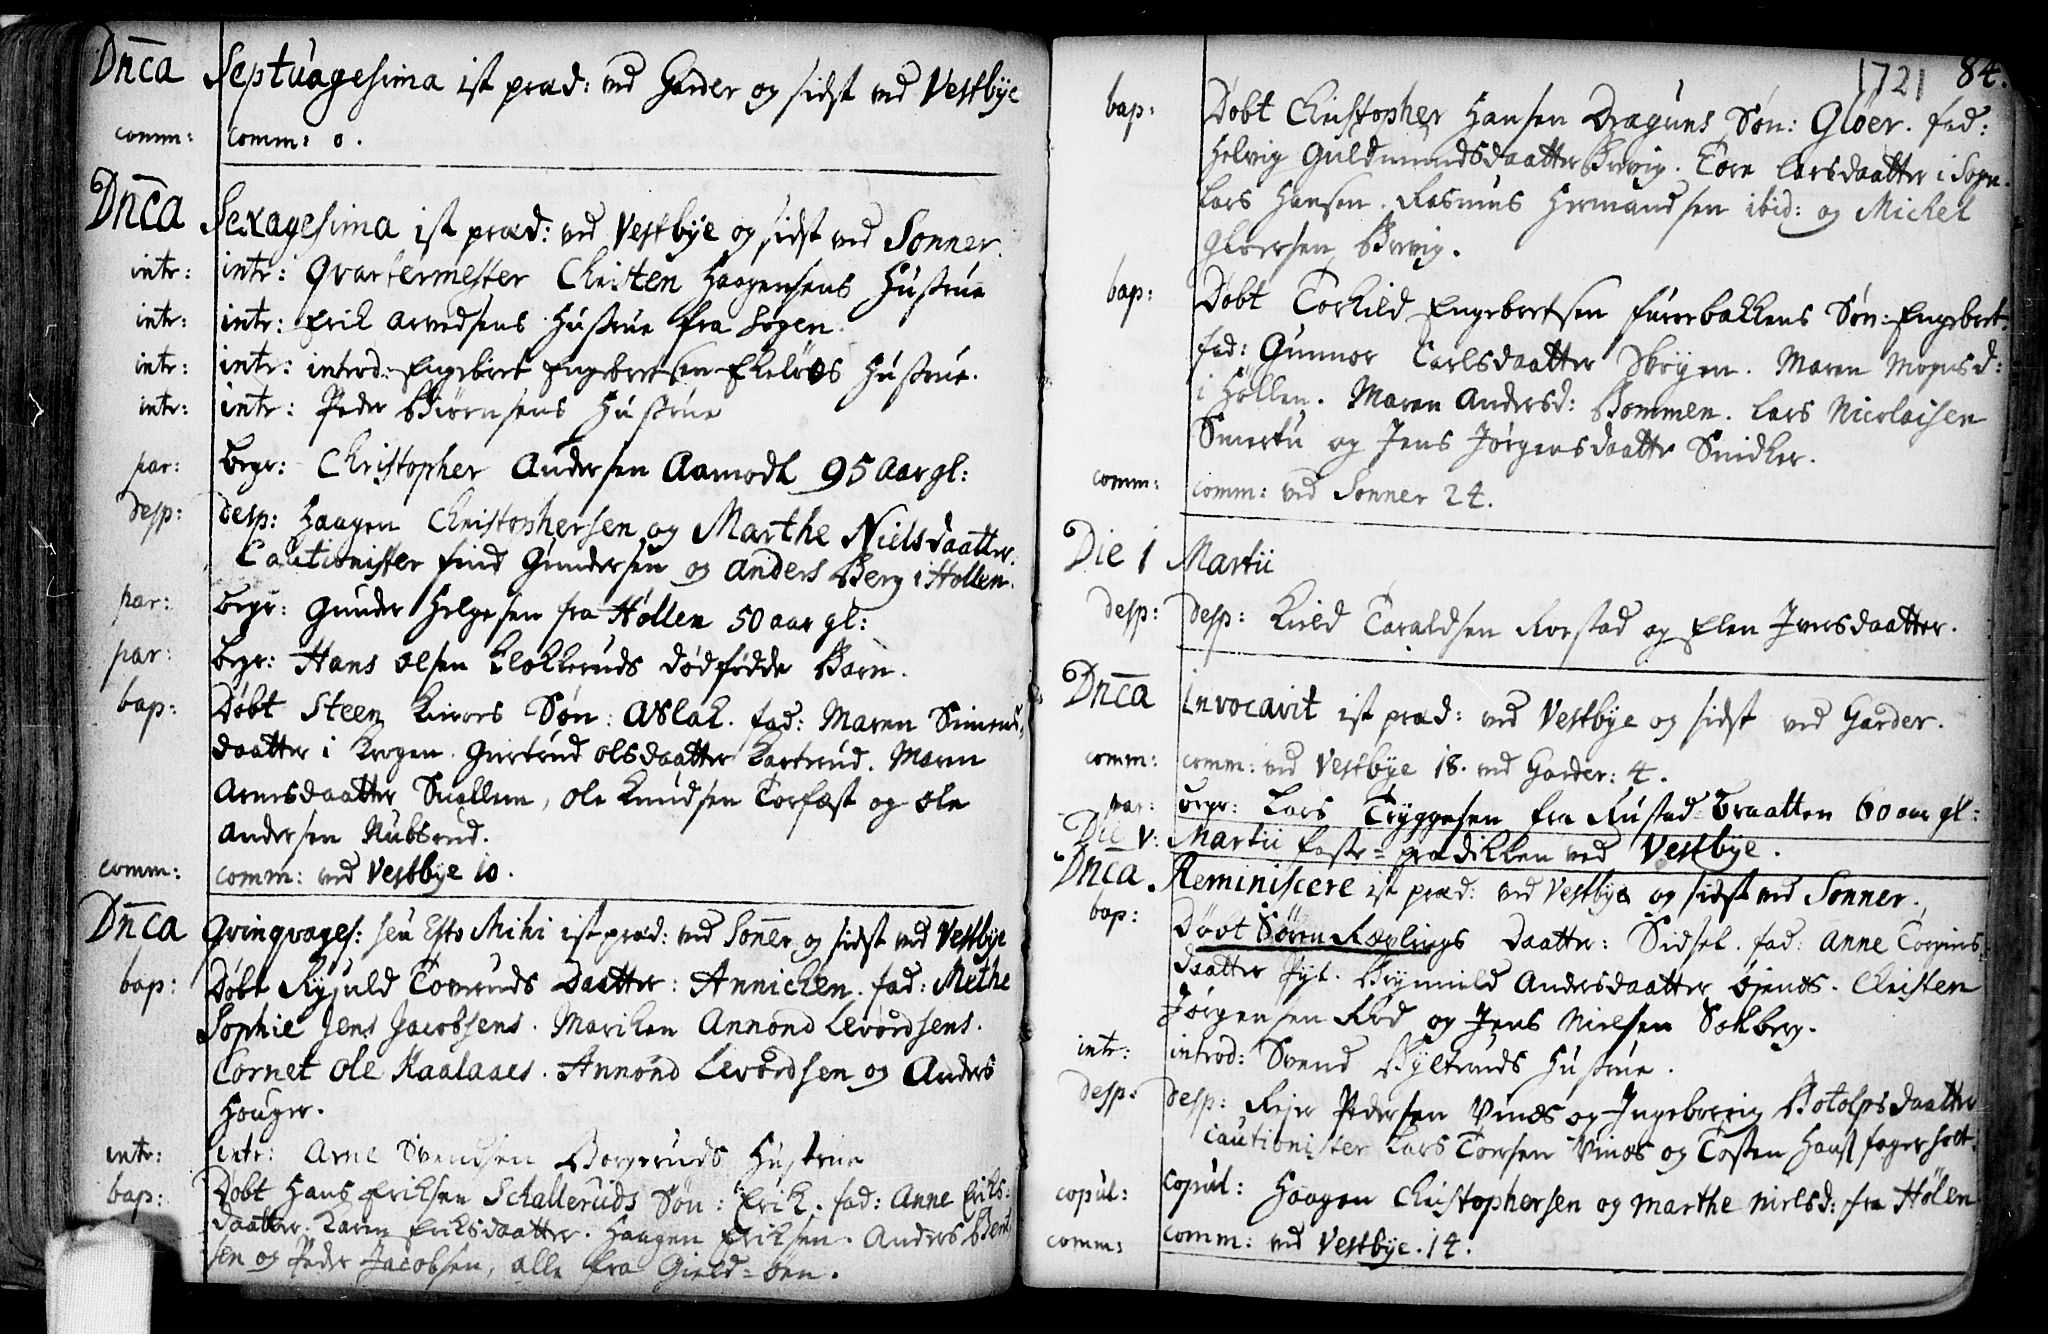 Dn̄ca Septuagesima ist præd: ved Garder og sidst ved Vestbÿe
comm: comm: 0.
Dn̄ca Sexagesima ist præd: ved Vestbÿe og sidst ved Sonner.
intr: intr: Qvartermester Christen Haagensens Hustrue
intr: intr: Erik Arvedsens Hustrue fra
intr: intr: introd: Engebret Engebretsen Ekeløes Hustrue.
intr: intr: Peder Biørnsens Hustrue
par: begr: Christopher Andersen Aamodt 95 aar gl:
desp: desp: Haagen Christophersen og Marthe Nielsdaatter.
Cautionister find Gundersen og Anders Berg i Hollen.
par: begr: Gunder Helgesen fra Hollen 50 aar gl:
par: begr: Hans Olsen Klokkeruds dødfødde Barn.
bap: Døbt Steen Søn: Aslak. fad: Maren
daatter i Krogen. Giertrud Olsdaatter Maren
daatter Ole Knudsen Torfæst og Ole
Andersen
comm: comm: ved Vestbÿe 10.
Dn̄ca Qvinqvages: seu Esto Mihi ist præd: ved Son̄er og sidst ved Vestbÿe
bap: Døbt Daatter: Annichen. fad: Methe
Sophie Jens Jacobsens. Mariken Annond Levordsens.
Cornet Ole Kaalaaes. Annond Levordsen og Anders
Houger.
intr: intr: Arne Svendsen Borgeruds Hustrue
bap: Døbt Hans Eriksen Schalleruds Søn: Erik. fad: Anne Eriks-
daatter. Karen Eriksdaatter. Haagen Eriksen. Anders
sen og Peder Jacobsen, alle fra
1721 84.
bap: Døbt Christopher Hansen Draguns Søn: Gløer. fad:
Helvig Guldmundsdaatter Brevig. Tore Larsdaatter i Sogn.
Lars Hansen. Rasmus Hermandsen ibid: og Michel
Gloersen Brevig.
bap: Døbt Torkild Engebretsen Furrebakkens Søn: Engebret.
fad: Gunnor Carlsdaatter Maren Mognsd:
i Hollen. Maren Andersd: Bommen. Lars Nicolaisen
og Jens Jørgensdaatter
comm: comm: ved Sonner 24.
Die 1 Martii
desp: desp: Kield Taraldsen Rorstad og Elen Iversdaatter.
Dn̄ca Invocavit ist præd: ved Vestbÿe og sidst ved Garder.
comm: comm: ved Vestbÿe 18. ved Garder: 4.
par: begr: Lars Tryggesen fra Rustad Braatten 60 aar gl:
Die V: Martii faste-prædikken ved Vestbÿe.
Dnca Reminiscere ist præd: ved Vestbÿe og sidst ved Sonner.
bap: Døbt Søren Daatter: Sidsel. fad: Anne
daatter Brynnild Andersdaatter Christen
Jørgensen og Jens Nielsen Solberg.
intr: introd: Svend Hustrue.
desp: desp: Reier Pedersen Vinæs og Ingeborrig Botolfsdaatter
cautionister Lars Torsen Vinæs og Tosten
copul: copul: Haagen Christophersen og Marthe Nielsd: fra Hölen
comm: comm: ved Vestbÿe. 14.